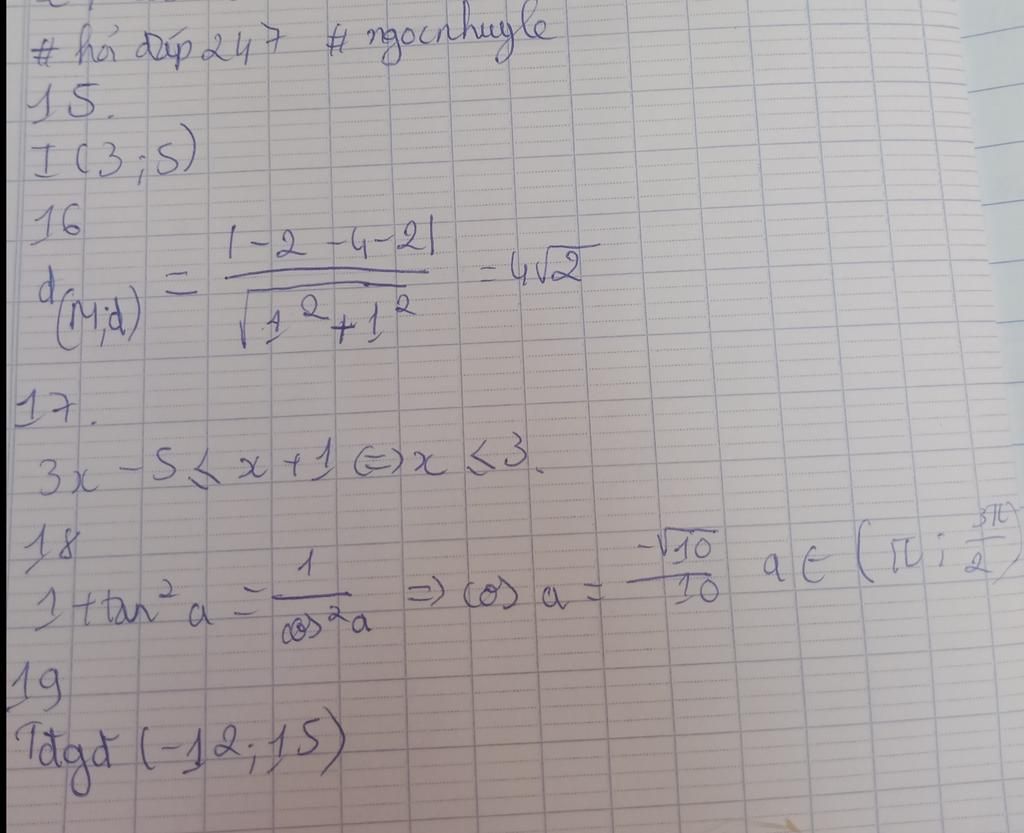 # hỏi đáp 247 # ngocnhuyle
15.
I (3 ; 5)
16
d(M;d) = |-2 -4-2| / √(1² + 1²) = 4√2
17.
3x - 5 ≤ x + 1 ⇔ x ≤ 3.
18
1 + tan² a = 1 / cos² a ⇒ cos a = -√10 / 10 a ∈ (π ; 3π/2)
19
Tđgđ (-12 ; 15)